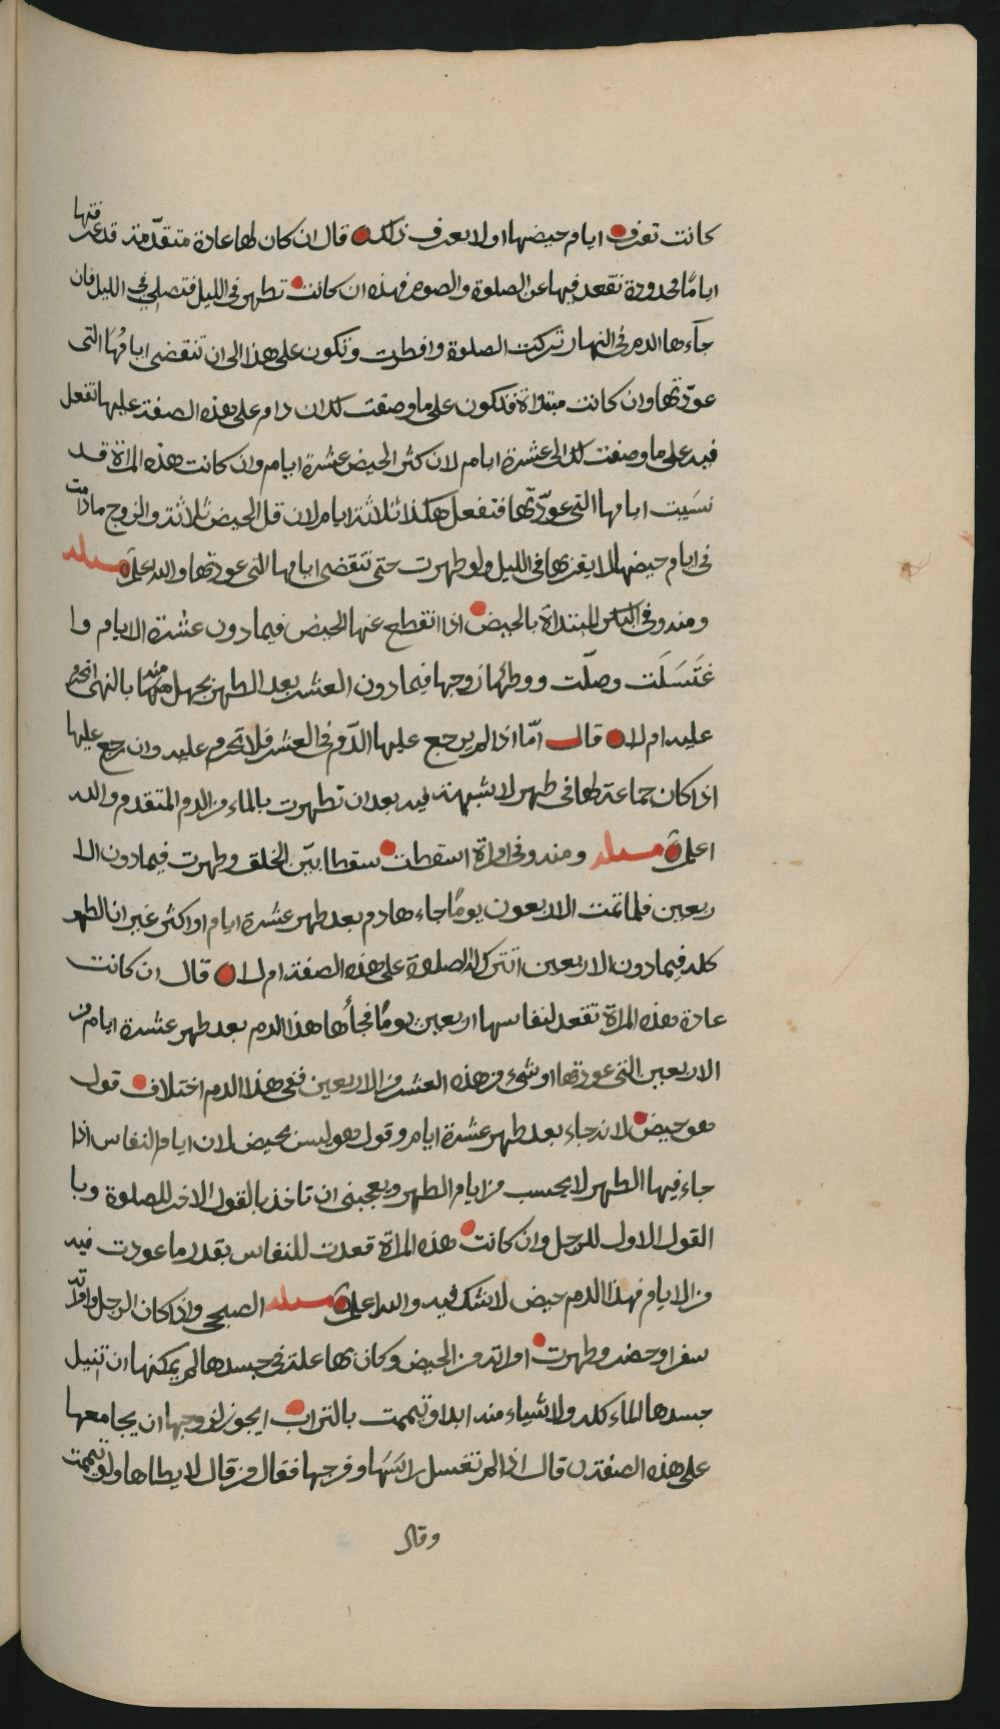 كانت تعرف ايام حيضها او لا تعرف ذلك قال ان كان لها عادة متقدّمة قد عرفتها
اياما محدودة تقعد فيها عن الصلوة والصوم فهذه ان كانت تطهر في الليل فتصلي في الليل فان
جآءها الدم في النهار تركت الصلوة وافطرت وتكون على هذا الى ان تنقضي ايامُها التى
عوّدتها وان كانت مبتداة فتكون على ما وصفت لك ان دام على هذه الصفة عليها تفعل
فيه على ما وصفت لك الى عشرة ايام لان كثر الحيض عشرة ايام وان كانت هذه المراة قد
نسَيت ايامها التى عوّدتها فتفعل هكذا ثلاثة ايام لان قل الحيض ثلاثة والزوج مادامت
في ايام حيضها لا يقربها في الليل ولو طهرت حتى تنقضي ايامها التى عودتها والله اعلم مسئله
ومنه وفى البكر المبتداة بالحيض اذا انقطع عنها الحيض فيما دون عشرة الايام وا
غتَسَلَت وصلّت ووطئها زوجها فيما دون العشر بعد الطهر بجهل منه منهما بالنهى اتحرم
عليه ام لا قال امّا اذا لم يرجع عليها الدّم في العشر فلا تحرم عليه وان رجع عليها
اذا كان جماعه لها في طهر لا شبهة فيه بعد ان تطهرت بالماء من الدم المتقدم والله
اعلم مسئله ومنه وفى امراة اسقطت سقطا بيّن الخلق وطهرت فيما دون الا
ربعين فلما تمت الاربعون يومًا جاءها دم بعد طهر عشرة ايام او اكثر غير ان الطهر
كله فيما دون الاربعين اتترك له الصلوة على هذه الصفة ام لا قال ان كانت
عادة هذه المراة تقعد لنفاسها اربعين يومًا فجأها هذا الدم بعد طهر عشرة ايام من
الاربعين التى عودتها او شيء من هذه العشر من الاربعين ففى هذا الدم اختلاف قول
هو حيض لانه جاء بعد طهر عشرة ايام وقول هو ليس بحيض لان ايام النفاس اذا
جاء فيها الطهر لا يحسب من ايام الطهر ويعجبنى ان تاخذ بالقول الاخر للصلوة وبا
القول الاول للرجل وان كانت هذه المراة قعدت للنفاس بقدر ما عودت فيه
من الايام فهذا الدم حيض لا شك فيه والله اعلم مسئله الصبحى واذا كان الرجل وامراته
سفر او حضر وطهرت امراته من الحيض وكان بها علة في جسدها لم يمكنها ان تنيل
جسدها الماء كله ولا شياء منه ابدا وتيممت بالتراب ايجوز لزوجها ان يجامعها
على هذه الصفة قال اذا لم تغسل راسَها وفرجها فقال من قال لا يطاها ولو تيممت
وقال